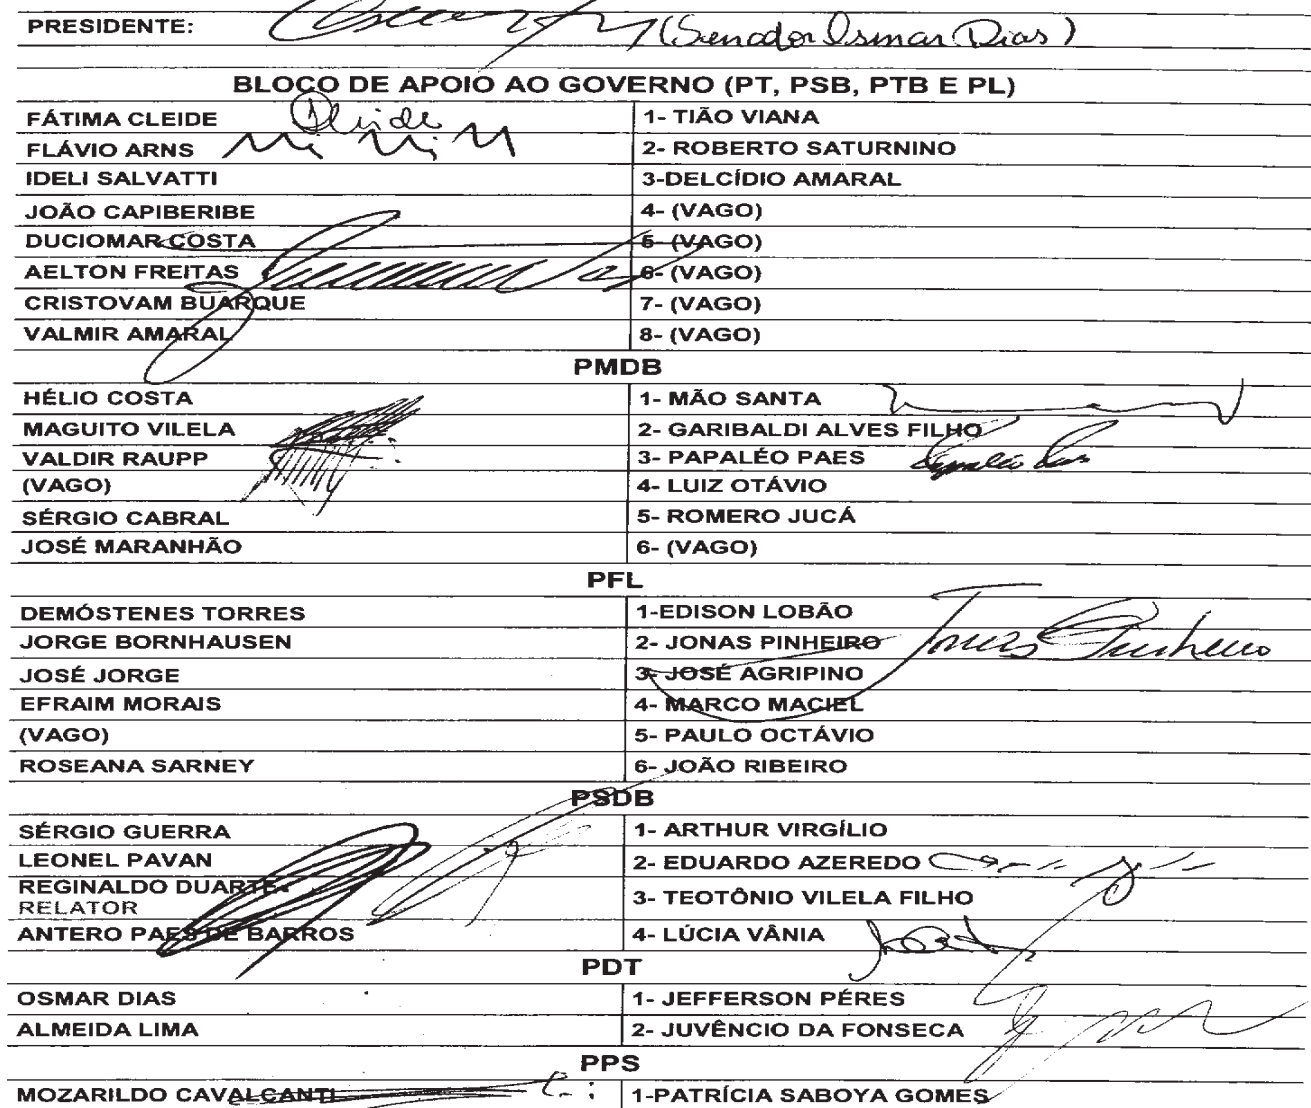 PRESIDENTE: (Senador Osmar Dias)
BLOCO DE APOIO AO GOVERNO (PT, PSB, PTB E PL)
FÁTIMA CLEIDE Cleide 1- TIÃO VIANA
FLÁVIO ARNS 2- ROBERTO SATURNINO
IDELI SALVATTI 3-DELCÍDIO AMARAL
JOÃO CAPIBERIBE 4- (VAGO)
DUCIOMAR COSTA 5- (VAGO)
AELTON FREITAS 6- (VAGO)
CRISTOVAM BUARQUE 7- (VAGO)
VALMIR AMARAL 8- (VAGO)
PMDB
HÉLIO COSTA 1- MÃO SANTA
MAGUITO VILELA 2- GARIBALDI ALVES FILHO
VALDIR RAUPP 3- PAPALÉO PAES Papaléo Paes
(VAGO) 4- LUIZ OTÁVIO
SÉRGIO CABRAL 5- ROMERO JUCÁ
JOSÉ MARANHÃO 6- (VAGO)
PFL
DEMÓSTENES TORRES 1-EDISON LOBÃO
JORGE BORNHAUSEN 2- JONAS PINHEIRO Jonas Pinheiro
JOSÉ JORGE 3- JOSÉ AGRIPINO
EFRAIM MORAIS 4- MARCO MACIEL
(VAGO) 5- PAULO OCTÁVIO
ROSEANA SARNEY 6- JOÃO RIBEIRO
PSDB
SÉRGIO GUERRA 1- ARTHUR VIRGÍLIO
LEONEL PAVAN 2- EDUARDO AZEREDO
REGINALDO DUARTE- 3- TEOTÔNIO VILELA FILHO
RELATOR
ANTERO PAES DE BARROS 4- LÚCIA VÂNIA
PDT
OSMAR DIAS 1- JEFFERSON PÉRES
ALMEIDA LIMA 2- JUVÊNCIO DA FONSECA
PPS
MOZARILDO CAVALCANTI 1-PATRÍCIA SABOYA GOMES